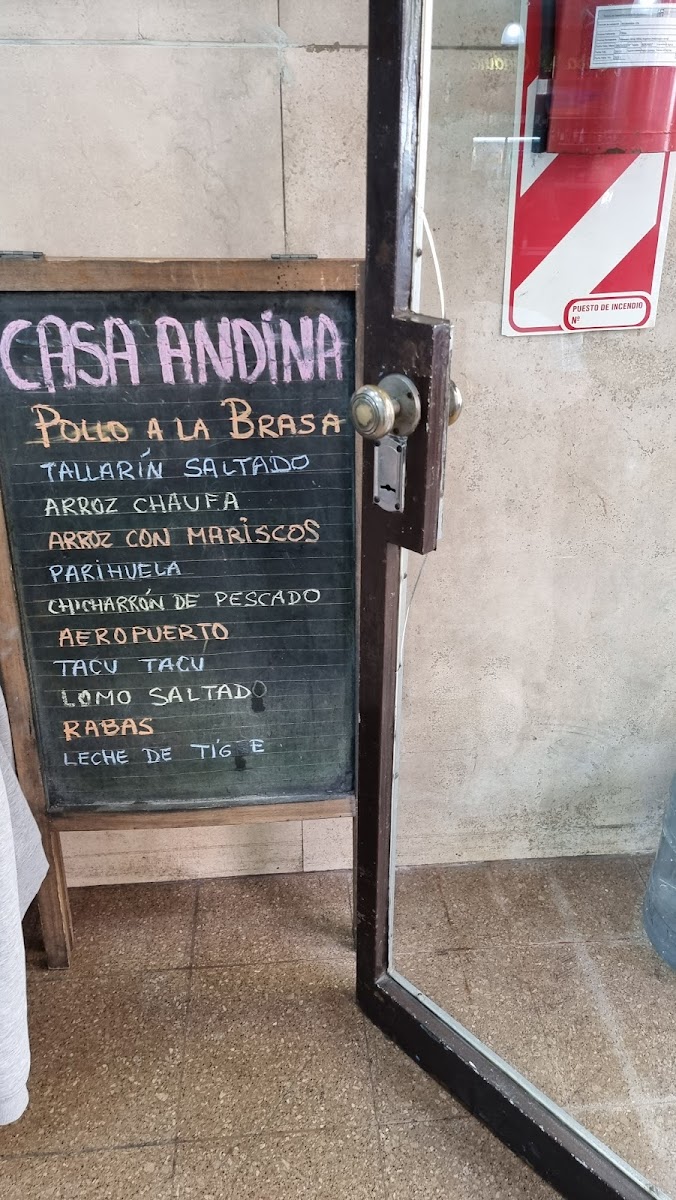 CASA ANDINA
POLLO A LA BRASA
TALLARÍN SALTADO
ARROZ CHAUFA
ARROZ CON MARISCOS
PARIHUELA
CHICHARRÓN DE PESCADO
AEROPUERTO
TACU TACU
LOMO SALTADO
RABAS
LECHE DE TIG E
PUESTO DE INCENDIO
Nº